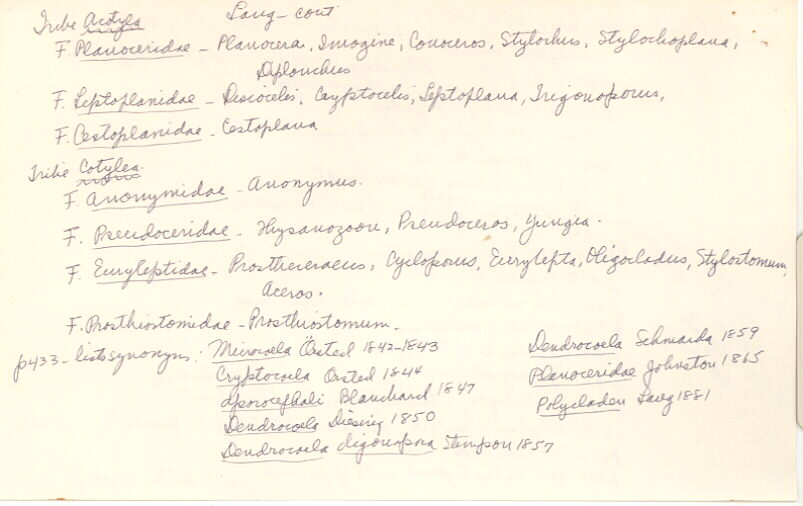 Lang - cont
Tribe Acotylea
F. Planoceridae - Planocera, Imogine, Conoceros, Stylochus, Stylochoplana,
Diplonchus
F. Leptoplanidae - Discocelis, Cryptocelis, Leptoplana, Trigonoporus,
F. Cestoplanidae - Cestoplana
Tribe Cotylea
F. Anonymidae - Anonymus.
F. Pseudoceridae - Thysanozoon, Pseudoceros, Yungia.
F. Euryleptidae - Prostheceraeus, Cycloporus, Eurylepta, Oligocladus, Stylostomum,
Aceros.
F. Prosthiostomidae - Prosthiostomum.
p433 - lists synonyms: Microcoela Örsted 1842-1843
Cryptocoela Orsted 1844
Aporocephali Blanchard 1847
Dendrocoela Diesing 1850
Dendrocoela digonopora Stimpson 1857
Dendrocoela Schmarda 1859
Planoceridae Johnston 1865
Polycladen Lang 1881